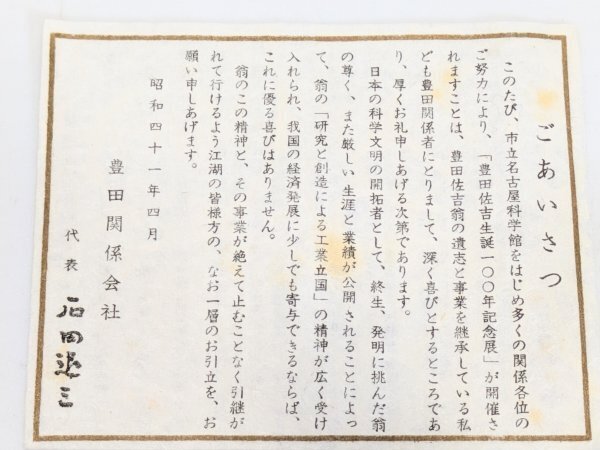 ごあいさつ
このたび、市立名古屋科学館をはじめ多くの関係各位の
ご努力により、「豊田佐吉生誕一〇〇年記念展」が開催さ
れますことは、豊田佐吉翁の遺志と事業を継承している私
ども豊田関係者にとりまして、深く喜びとするところであ
り、厚くお礼申しあげる次第であります。
日本の科学文明の開拓者として、終生、発明に挑んだ翁
の尊く、また厳しい生涯と業績が公開されることによっ
て、翁の「研究と創造による工業立国」の精神が広く受け
入れられ、我国の経済発展に少しでも寄与できるならば、
これに優る喜びはありません。
翁のこの精神と、その事業が絶えて止むことなく引継が
れて行けるよう江湖の皆様方の、なお一層のお引立を、お
願い申しあげます。
昭和四十一年四月
豊田関係会社
代表 石田退三